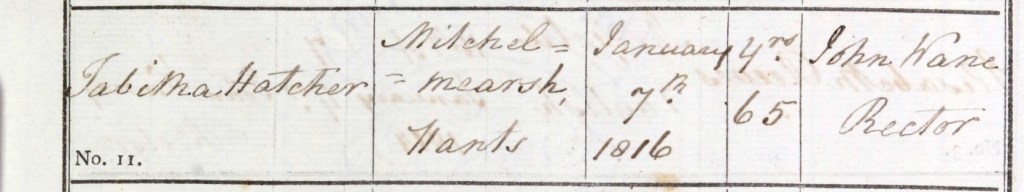 Tabitha Hatcher
No. 11.
Mitchel=
=mearsh,
Hants
January
7th
1816
Yrs
65
John Wane
Rector